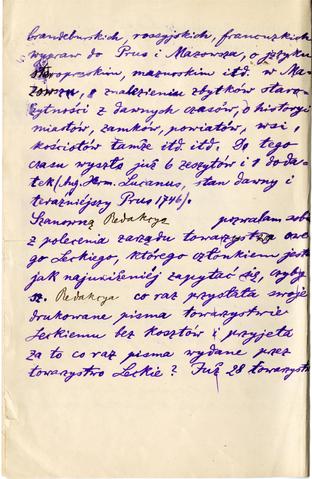 brandeburskich, rossyjskich, francuzkich
wypraw do Prus i Mazowsza, o języku
staropruskim, mazurskim itd. w Ma-
zowszu, o znalezieniu zbytków staro-
żytności z dawnych czasów, o historyi
miastów, zamków, powiatów, wsi,
kościołów tamże itd. itd. Do tego
czasu wyszło już 6 zeszytów i 1 doda-
tek (Aug. Herm. Lucanus, stan dawny i
teraźniejszy Prus 1748).
Szanowną Redakcyę pozwalam sobie
z polecenia zarządu towarzystwa
go Leckiego, którego członkiem jestem
jak najuniżeniéj zapytać się, czyby
sz. Redakcya co raz przysłała swoje
drukowane pisma towarzystwie
Leckiemu bez kosztów i przyjęła
za to co raz pisma wydane przez
towarzystwo Leckie? Już 28 towarzystw